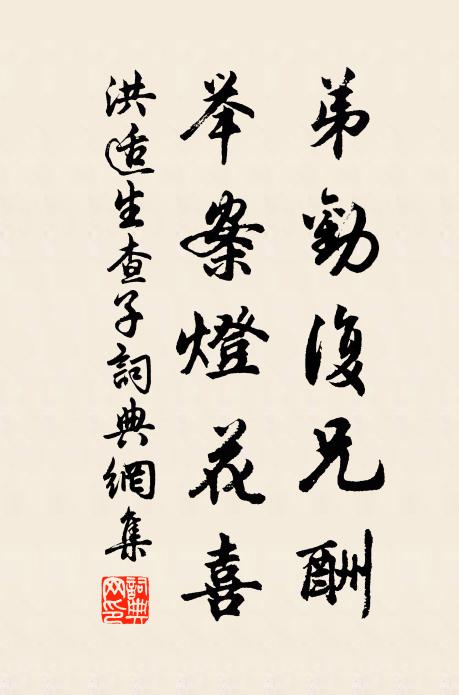 弟勸復兄酬
举案燈花喜
洪适生查子詞典網集
詞典网印